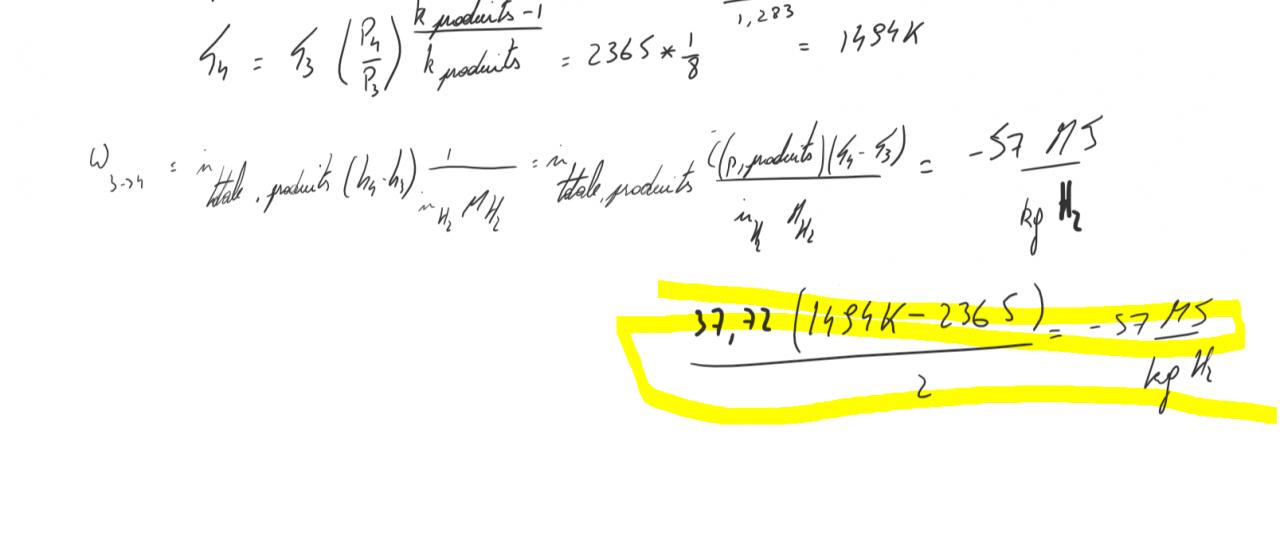 k produits -1
1,283
T4 = T3 (P4/P3) k produits = 2365 * 1/8 = 1494K
W3->4 = n totale, produits (h4-h3) 1 / nH2 MH2 = n totale, produits (Cp, produits)(T4-T3) / nH2 MH2 = -57 MJ / kg H2
37,72 (1494K - 2365) / 2 = -57 MJ / kg H2